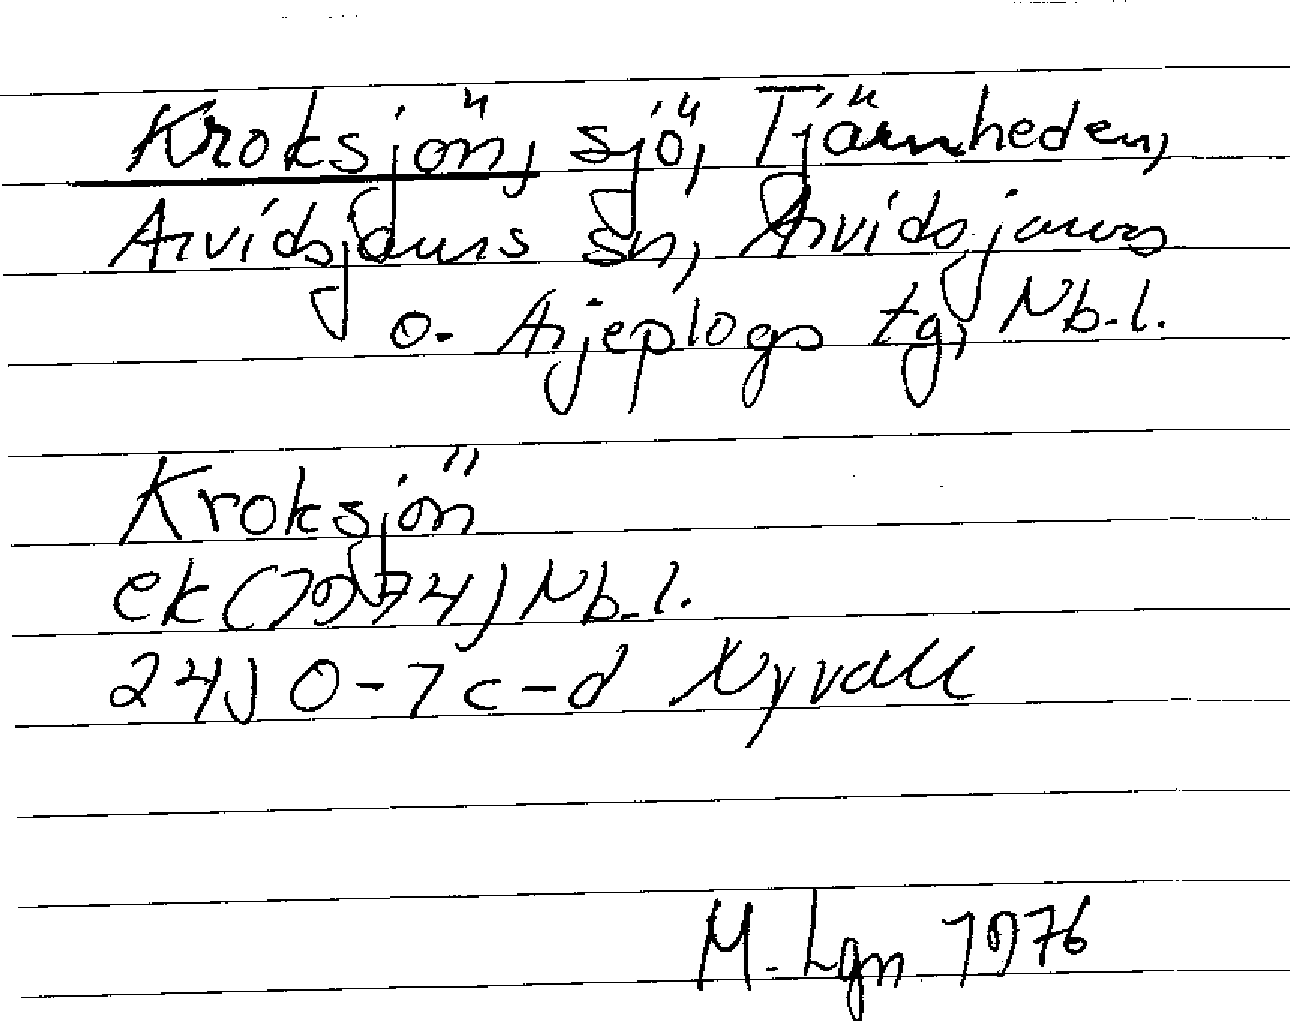 Kroksjön, sjö, Tjärnheden,
Arvidsjaurs sn, Arvidsjaurs
o. Arjeplogs tg, Nb.l.
Kroksjön
ek (1974) Nb.l.
24J 0-7 c-d Nyvall
M. Lgn 1976